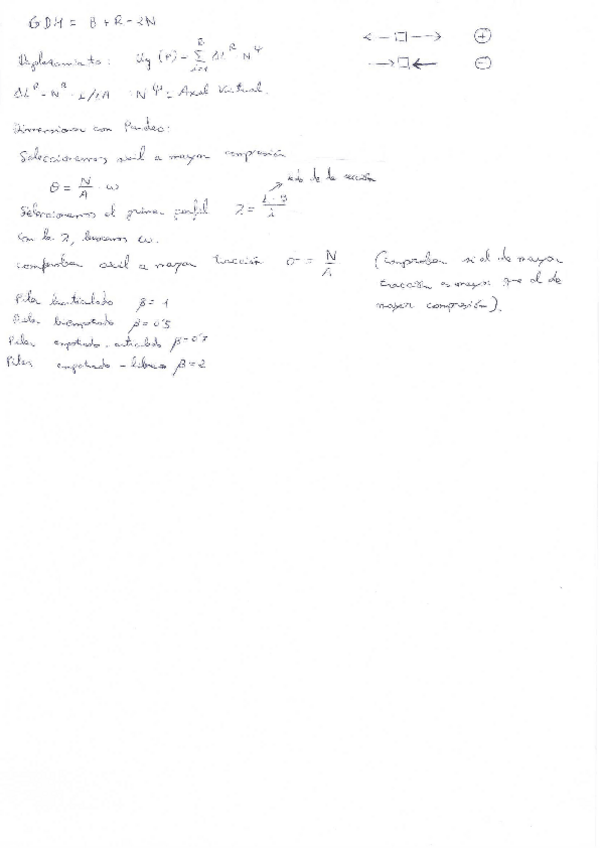 GDH = B + R - 2N
← □ → ⊕
Desplazamiento: Uy (P) = Σ ΔL^R · N^ψ
→ □ ← ⊖
ΔL^R = N^R · L/EA N^ψ = Axil Virtual.
Dimensionar con Pandeo:
Seleccionamos axil a mayor compresión
σ = N/A · ω
de la sección
Seleccionamos el primer perfil λ = L·β/i
Con la λ, buscamos ω.
Comprobar axil a mayor tracción σ = N/A (Comprobar si el de mayor
tracción es mayor que el de
mayor compresión).
Pilar biarticulado β = 1
Pilar biempotrado β = 0'5
Pilar empotrado - articulado β = 0'7
Pilar empotrado - libre β = 2